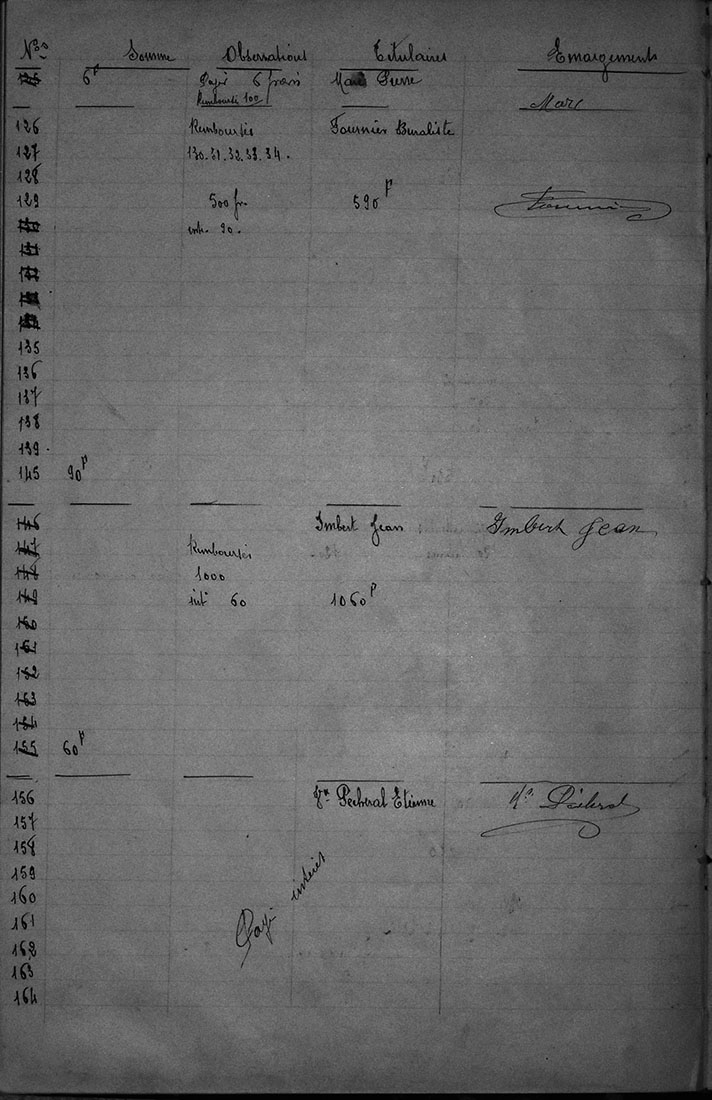 Nos Somme Observations Titulaires Emargements
125 6 f Payé 6 frais Marc Pierre
Remboursés 100 Marc
126 Remboursés Fournier Buraliste
127 130. 31. 32. 33. 34.
128
129 500 fr. 590 f Fournier
130 int. 90.
131
132
133
134
135
136
137
138
139
145 90 f
146 Imbert Jean Imbert Jean
147 Remboursés
148 1000
149 int 60 1060 f
150
151
152
153
154
155 60 f
156 Vve Pecheral Etienne
157
158
159
160
161 Payé intérêt
162
163
164